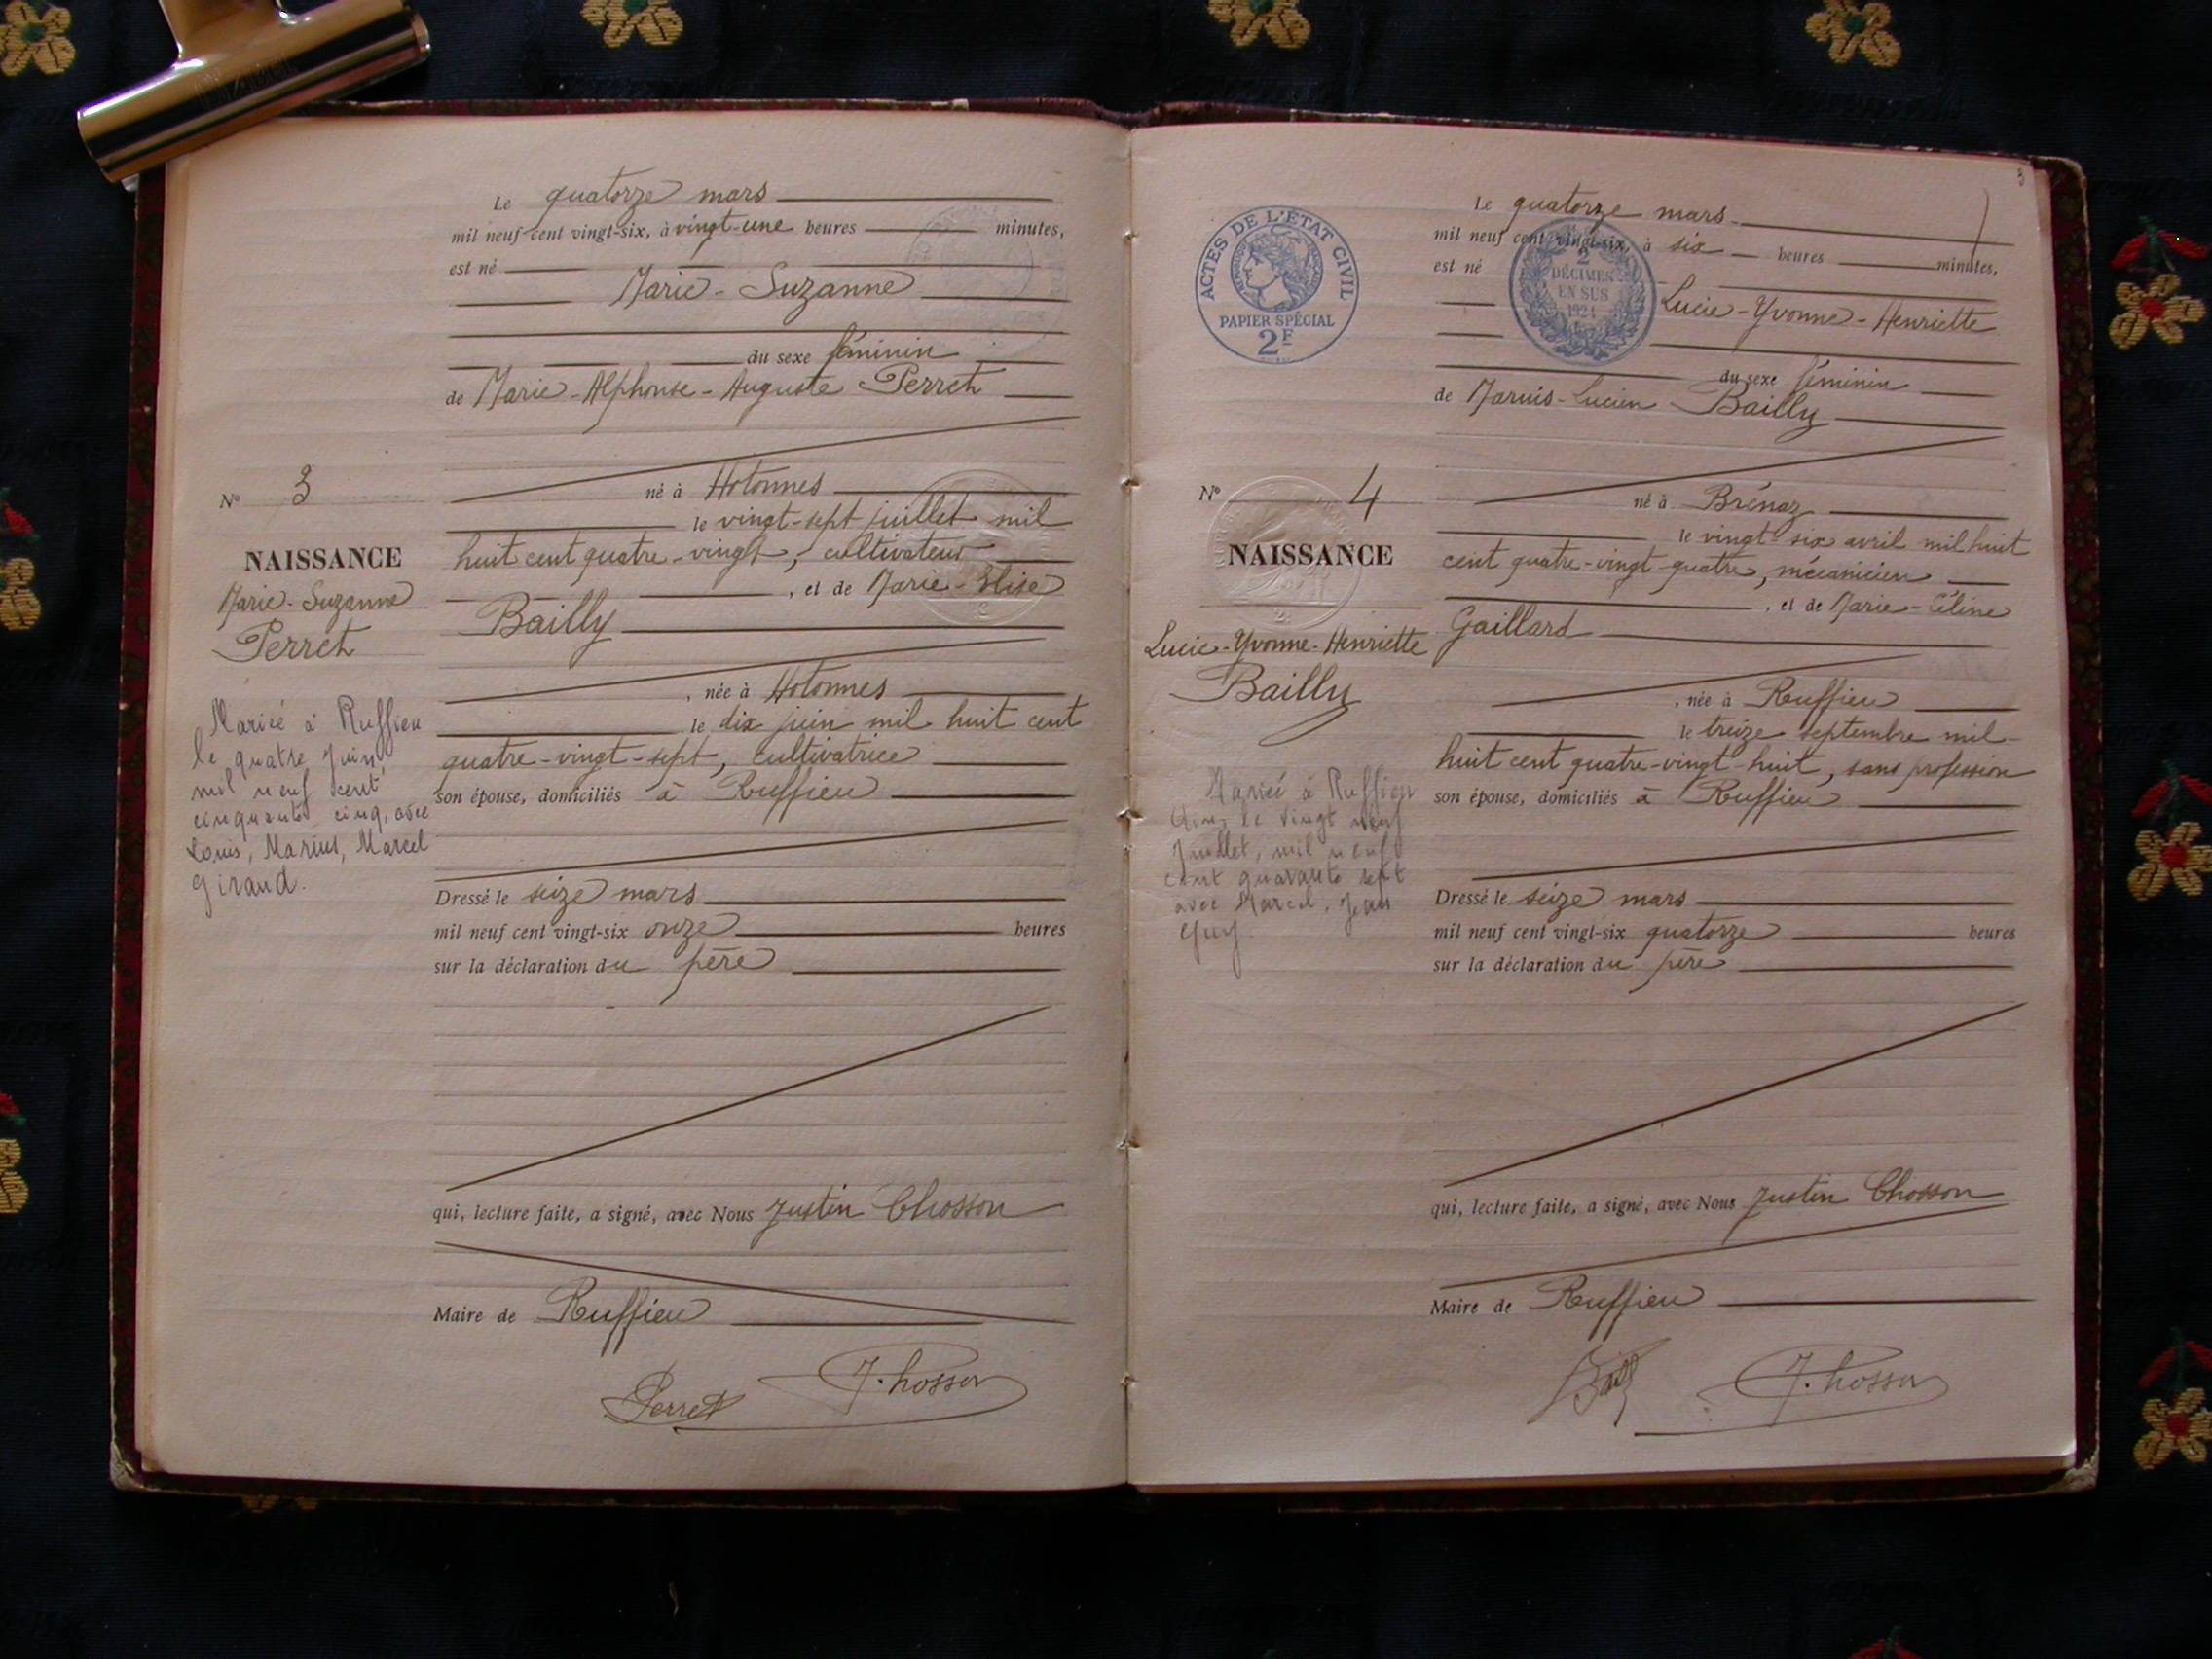 Le quatorze mars
mil neuf cent vingt-six, à vingt-une heures minutes,
est né
Marie-Suzanne
du sexe féminin
de Marie-Alphonse-Auguste Perret
né à Hotonnes
le vingt-sept juillet mil
huit cent quatre-vingt, cultivateur
, et de Marie-Elise
Bailly
, née à Hotonnes
le dix juin mil huit cent
quatre-vingt-sept, cultivatrice
son épouse, domiciliés à Ruffieu
Dressé le seize mars
mil neuf cent vingt-six onze heures
sur la déclaration du père
qui, lecture faite, a signé, avec Nous Justin Chosson
Maire de Ruffieu
Perret J. Chosson
N° 3
NAISSANCE
Marie-Suzanne
Perret
Mariée à Ruffieu
le quatre Juin
mil neuf cent
cinquante cinq, avec
Louis, Marius, Marcel
Giraud.
3
Le quatorze mars
mil neuf cent vingt-six, à six heures minutes,
est né
Lucie-Yvonne-Henriette
du sexe féminin
de Marius-Lucien Bailly
né à Brénaz
le vingt-six avril mil huit
cent quatre-vingt-quatre, mécanicien
, et de Marie-Céline
Gaillard
, née à Ruffieu
le treize septembre mil
huit cent quatre-vingt-huit, sans profession
son épouse, domiciliés à Ruffieu
Dressé le seize mars
mil neuf cent vingt-six quatorze heures
sur la déclaration du père
qui, lecture faite, a signé, avec Nous Justin Chosson
Maire de Ruffieu
J. Chosson
ACTES DE L'ÉTAT CIVIL
PAPIER SPÉCIAL
2F
2
DÉCIMES
EN SUS
1924
N° 4
NAISSANCE
Lucie-Yvonne-Henriette
Bailly
Mariée à Ruffieu
Ain, le vingt neuf
Juillet, mil neuf
cent quarante sept
avec Marcel, Jean
Guy.